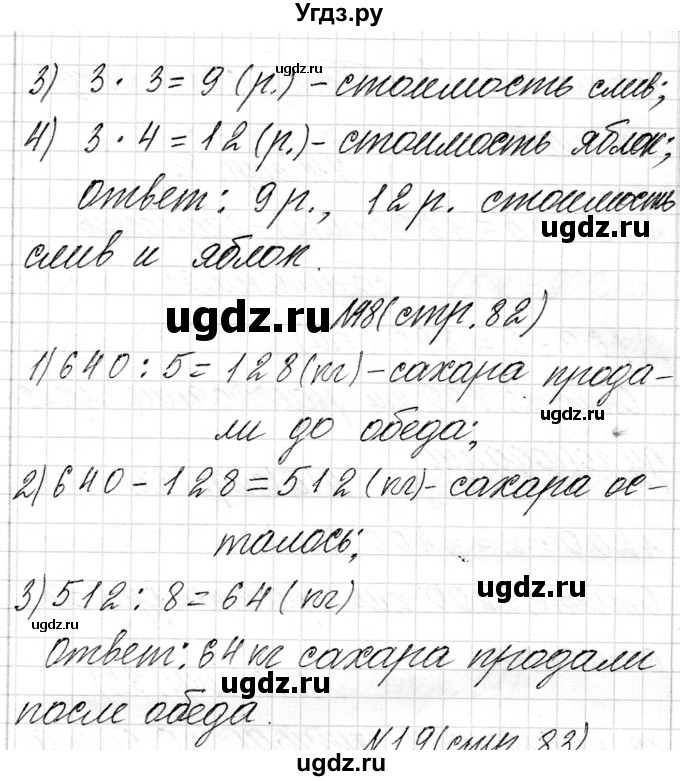 Угдз.ру
3) 3 · 3 = 9 (р.) - стоимость слив;
4) 3 · 4 = 12 (р.) - стоимость яблок;
Ответ: 9 р., 12 р. стоимость
слив и яблок.
№18 (стр. 82)
1) 640 : 5 = 128 (кг) - сахара прода-
ли до обеда;
2) 640 - 128 = 512 (кг) - сахара ос-
талось;
3) 512 : 8 = 64 (кг)
Ответ: 64 кг сахара продали
после обеда.
№19 (стр. 83)
ugdz.ru
ugdz.ru
ugdz.ru
ugdz.ru
ugdz.ru
ugdz.ru
ugdz.ru
ugdz.ru